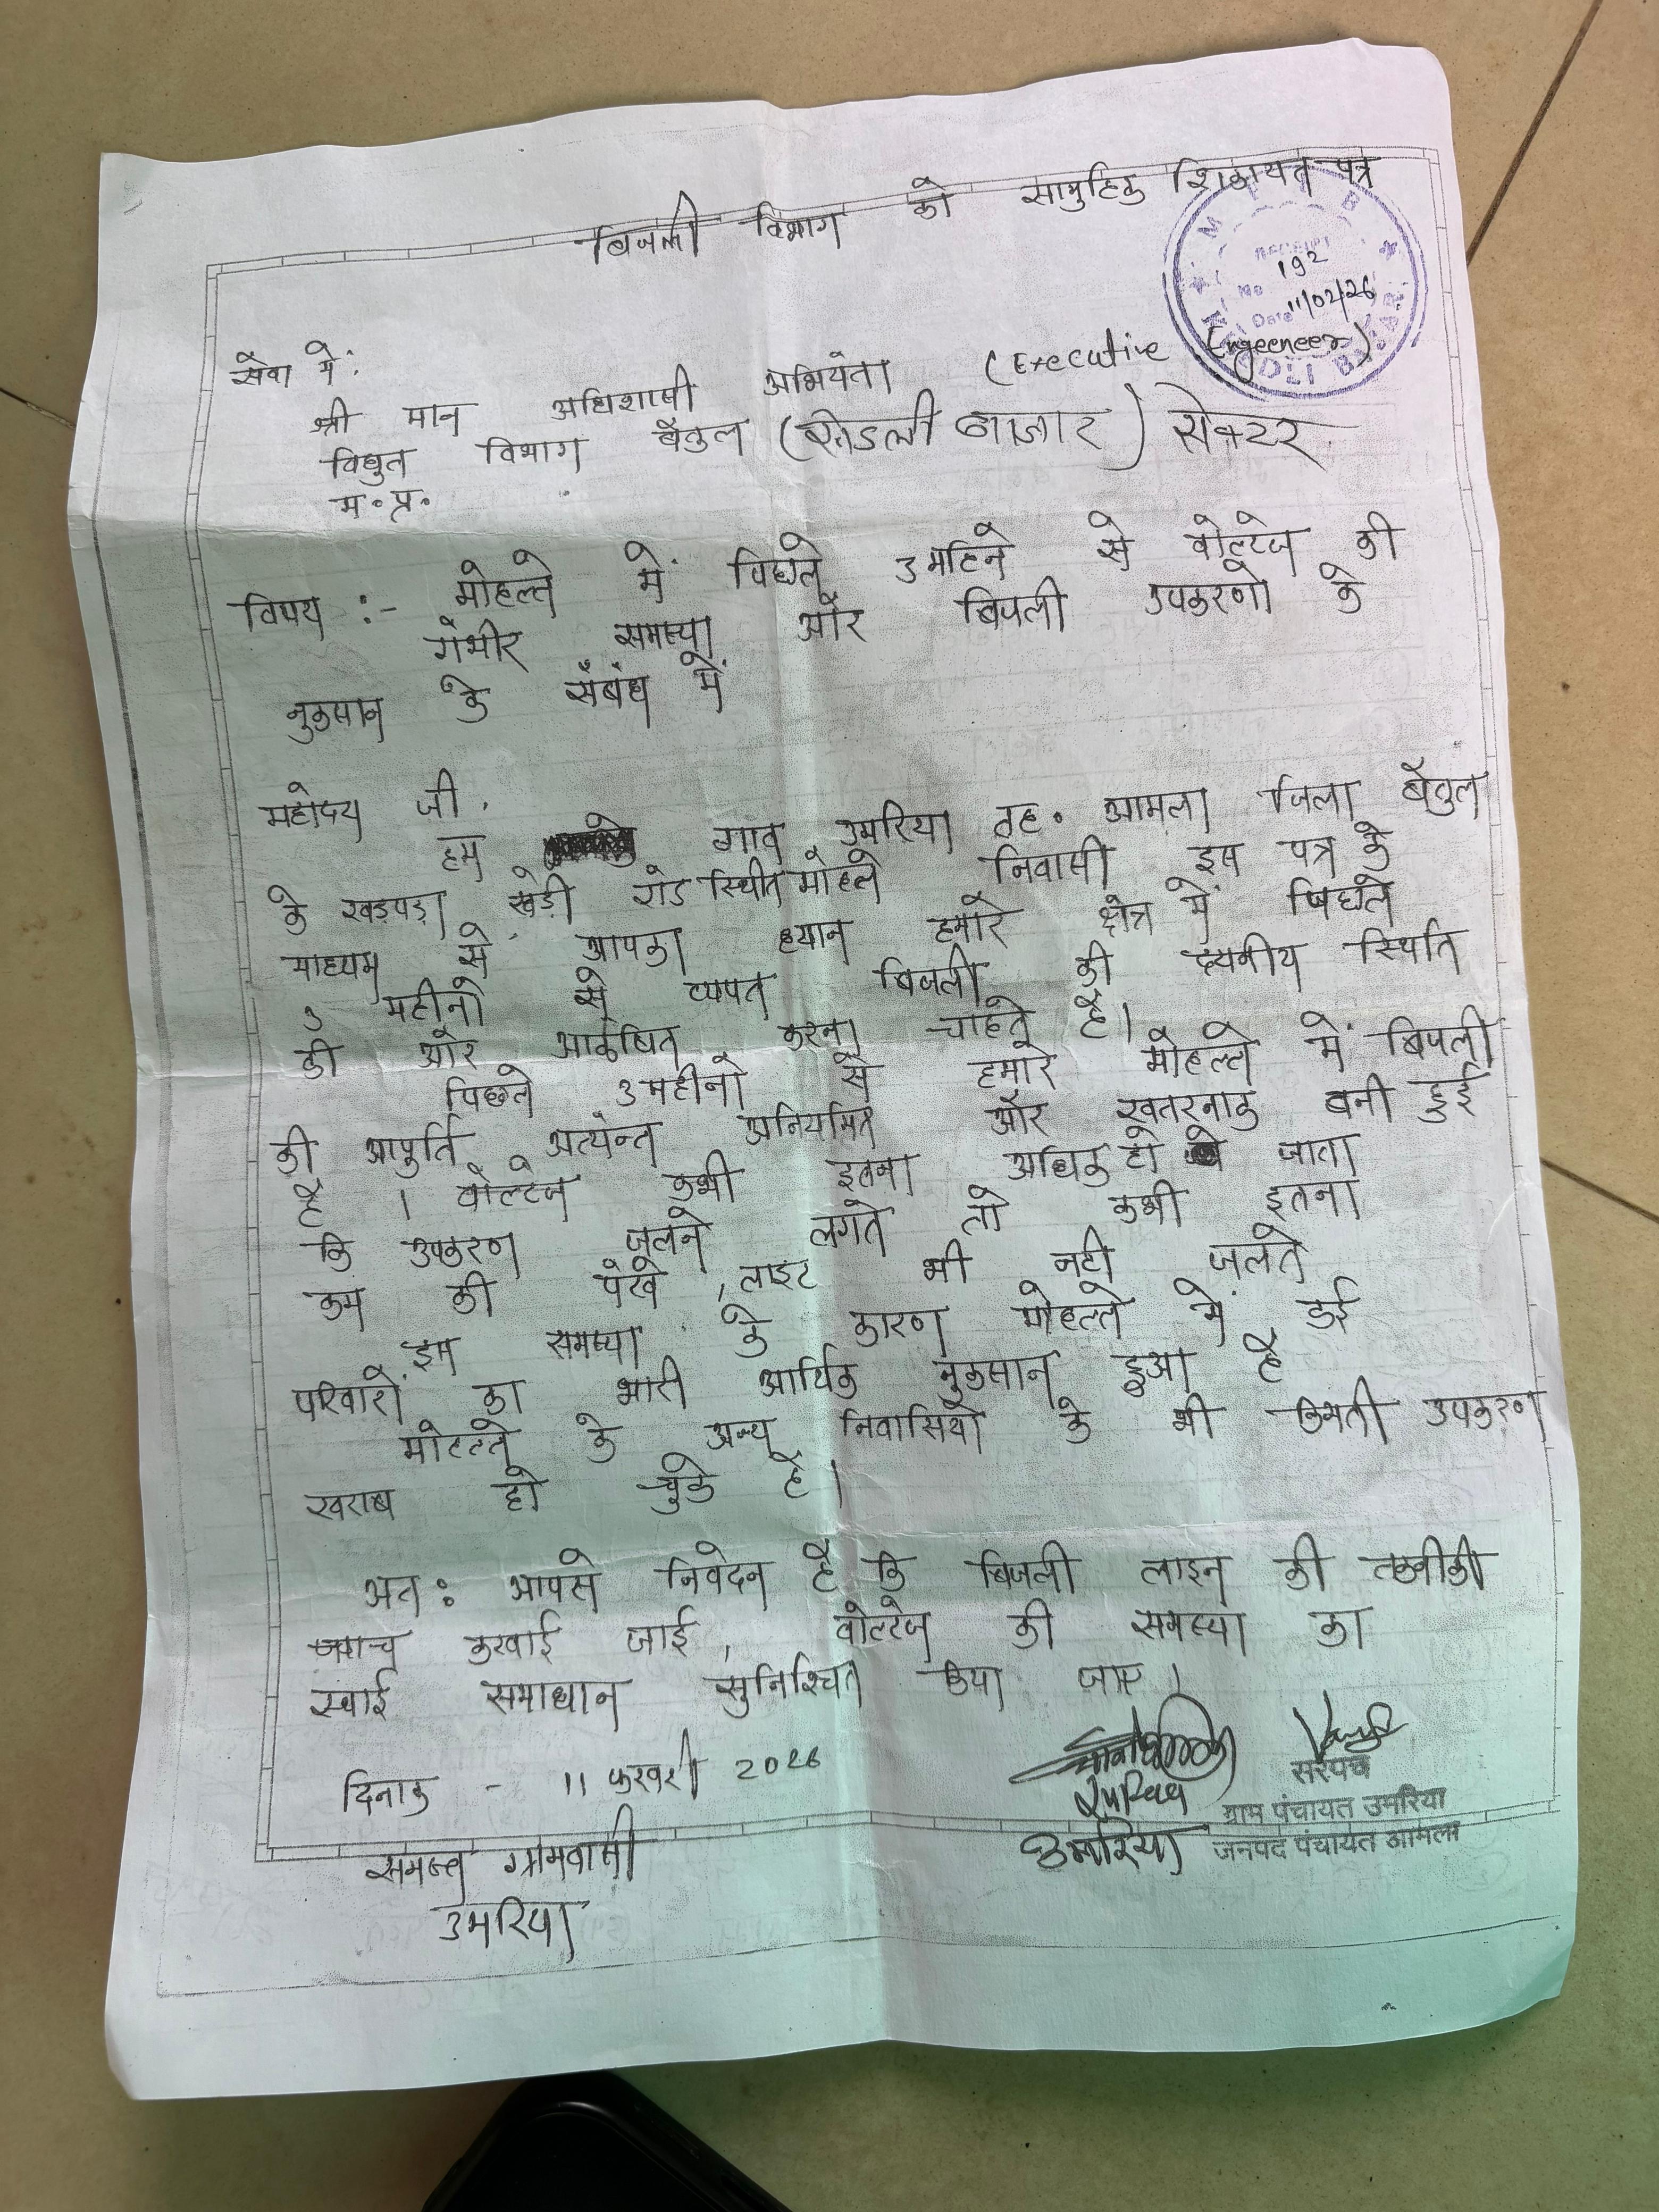 बिजली विभाग को सामुहिक शिकायत पत्र
RECEIPT
No 192
Date 11/02/26
सेवा में:
श्री मान अधिशाषी अभियंता (Executive Engeeneer)
विद्युत विभाग बैतुल (खेडली बाजार) सेक्टर
म॰प्र॰
विषय :- मोहल्ले में पिछले 3 महिने से वोल्टेज की
गंभीर समस्या और बिजली उपकरणो के
नुकसान के संबंध में
महोदय जी,
हम गाव उमरिया तह॰ आमला जिला बैतुल
के खड़पड़ा खेड़ी रोड स्थित मोहले निवासी इस पत्र के
माध्यम से आपका ध्यान हमारे क्षेत्र में पिछले
3 महीनो से व्यपत बिजली की दयनीय स्थिति
की और आकषित करना चाहते है।
पिछले 3 महीनो से हमारे मोहल्ले में बिजली
की आपुर्ति अत्यंन्त अनियमित और खतरनाक बनी हुई
है । वोल्टेज कभी इतना अधिक हो जाता
कि उपकरण जलने लगते तो कभी इतना
कम की पंखे , लाइट भी नही जलते
इस समस्या के कारण मोहल्ले में कई
परिवारों का भारी आर्थिक नुकसान हुआ है
मोहल्ले के अन्य निवासियो के भी किमती उपकरण
खराब हो चुके है।
अत: आपसे निवेदन है कि बिजली लाइन की तकनीकी
जाच करवाई जाई , वोल्टेज की समस्या का
स्थाई समाधान सुनिश्चित किया जाए।
दिनाक - 11 फरवरी 2026
सरपंच
ग्राम पंचायत उमरिया
उमरिया जनपद पंचायत आमला
समस्त ग्रामवासी
उमरिया